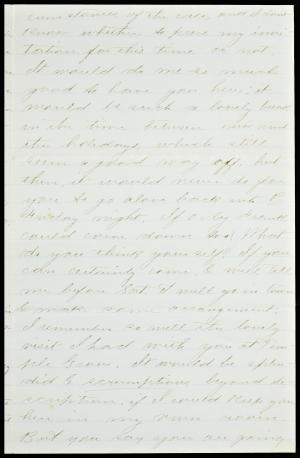 cumstances of the case, and I don't
know whether to press my invi-
tation for this time or not.
It would do me so much
good to have you here; it
would be such a lovely break
in the time between now and
the holidays, which still
seem a good way off. But
then, it would never do for
you to go alone back into
Friday night. If only
could come down too! What
do you think yourself? If you
can certainly come, & will tell
me before Sat. I will go in town
& make some arrangement.
I remember so well the lovely
visit I had with you at Tem-
ple Grove. It would be splen-
did & scrumptious beyond de-
scription, if I could keep you
here in my own room.
But you say you are going